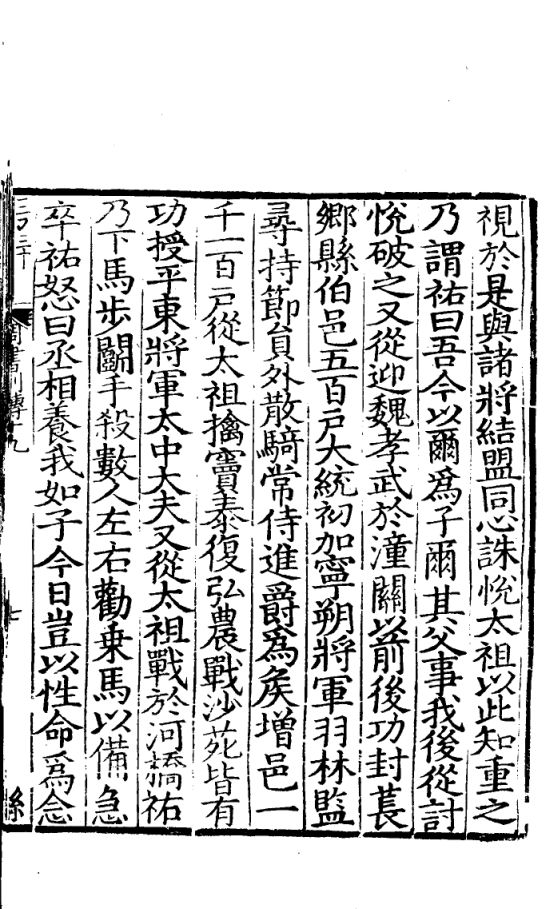 視於是與諸將結盟同心誅悅太祖以此知重之
乃謂祐曰吾今以爾爲子爾其父事我後從討
悅破之又從迎魏孝武於潼關以前後功封萇
鄉縣伯邑五百戶大統初加寧朔將軍羽林監
尋持節員外散騎常侍進爵爲矦增邑一
千一百戶從太祖擒竇泰復弘農戰沙苑皆有
功授平東將軍太中大夫又從太祖戰於河橋祐
乃下馬步鬬手殺數人左右勸乗馬以備急
卒祐怒曰丞相養我如子今日豈以性命爲念
周書列傳十九
七